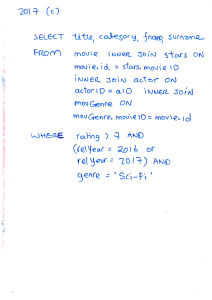 2017 (c)
SELECT title, category, fname, surname
FROM movie INNER JOIN stars ON
movie.id = stars.movieID
INNER JOIN actor ON
actorID = aID INNER JOIN
movGenre ON
movGenre.movieID = movie.id
WHERE rating > 7 AND
(relYear = 2016 or
relYear = 2017) AND
genre = 'Sci-Fi'